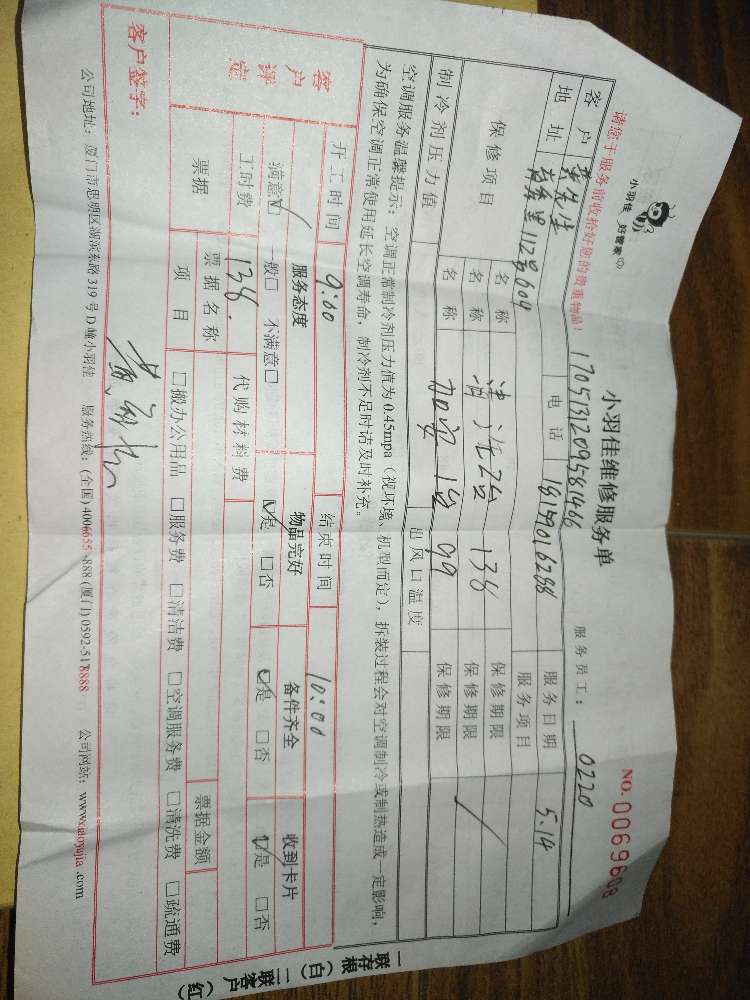 小羽佳 好管家
小羽佳维修服务单
NO. 0069608
请您于服务前收拾好您的贵重物品!
17051312095814
服务员工: 0220
客户 黄先生 电话 服务日期 5.14
地址 112号604 服务项目
保修项目 名称 清洗2台 138 保修期限
名称 加氨1台 99 保修期限
制冷剂压力值 名称 保修期限
出风口温度
空调服务温馨提示: 空调正常制冷剂压力值为0.45mpa (视环境、机型而定), 拆装过程会对空调制冷或制热造成一定影响,
为确保空调正常使用延长空调寿命, 制冷剂不足时请及时补充。
开工时间 9:00 结束时间 10:00
客户评定 服务态度 物品完好 备件齐全 收到卡片
满意☑ 一般□ 不满意□ ☑是 □否 ☑是 □否 ☑是 □否
工时费 138. 代购材料费
票据 票据名称 票据金额
项目 □搬办公用品 □服务费 □清洁费 □空调服务费 □清洗费 □疏通费
客户签字:
公司地址: 厦门市思明区湖滨东路319号D幢小羽佳 服务热线: (全国) 4006655-888 (厦门) 0592-5178888 公司网站: www.xiaoyujia.com
一联存根 (白) 二联客户 (红)